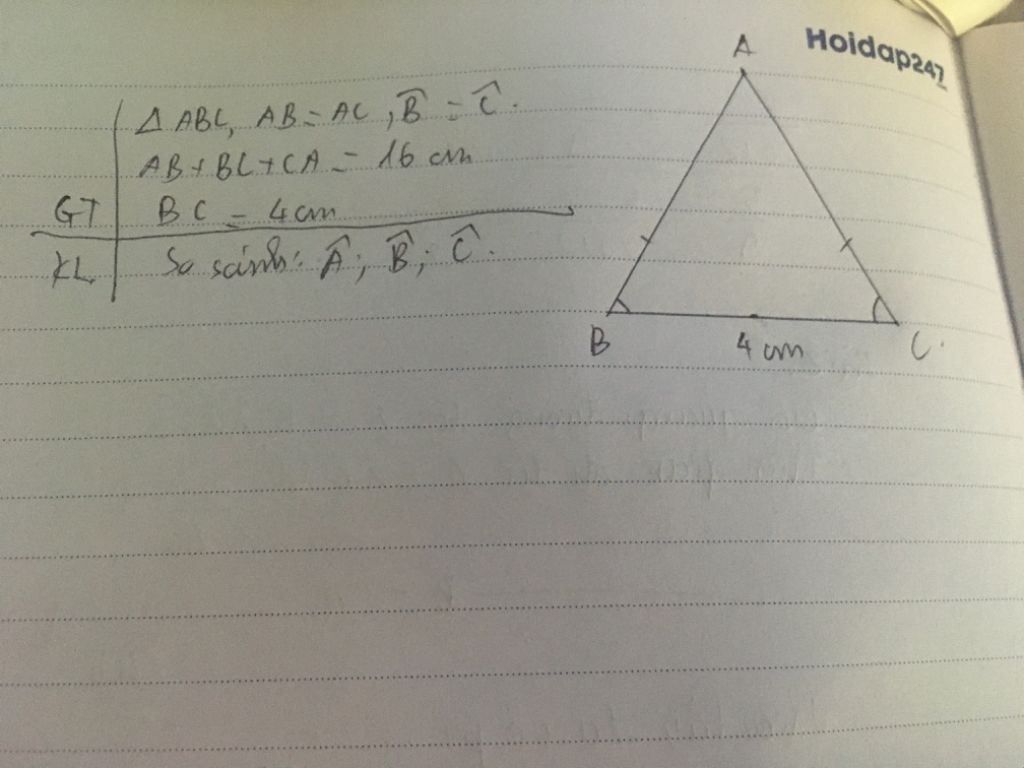 Hoidap247
Δ ABC, AB = AC, B̂ = Ĉ.
AB + BC + CA = 16 cm
GT BC = 4cm
KL So sánh: Â; B̂; Ĉ.
A
B 4 cm C.